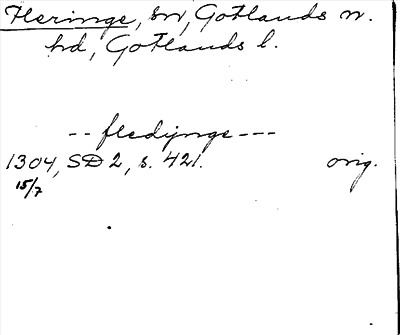 Fleringe, sn, Gotlands n.
hd, Gotlands l.
-- fledijnge ---
1304, SD 2, s. 421. orig.
15/7